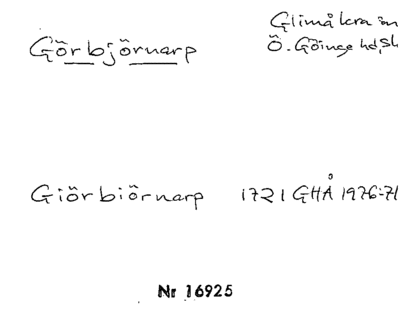 Glimåkra sn
Görbjörnarp Ö. Göinge hd, Sk
Giörbiörnarp 1721 GHÅ 1976:71
Nr 16925